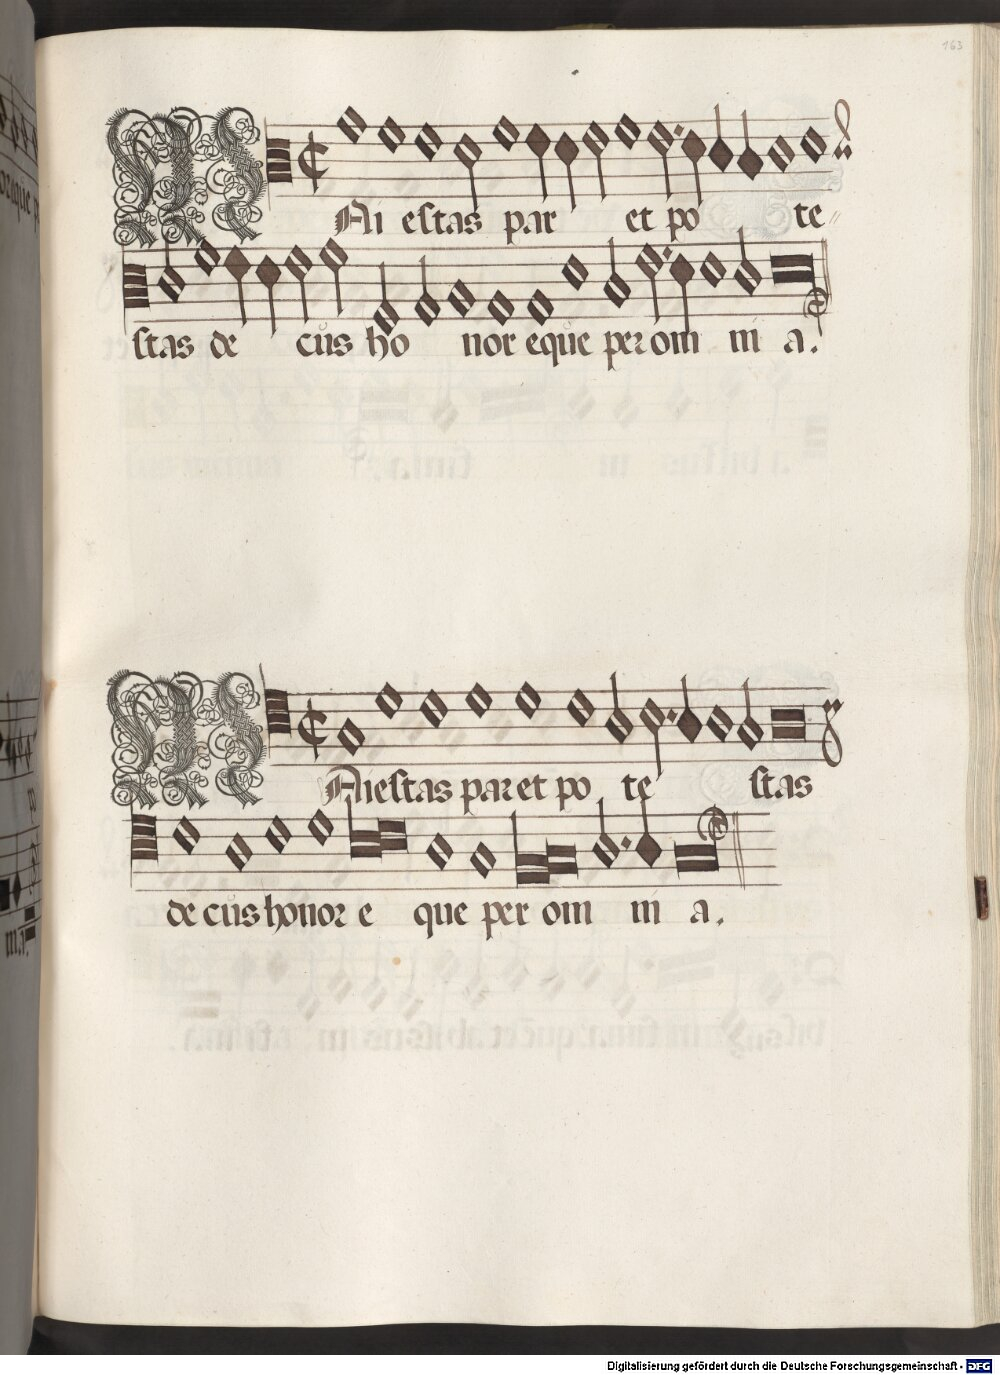 163
MAi estas par et po te
stas de cus ho nor eque per om ni a.
MAiestas par et po te stas
de cus honor e que per om ni a.
Digitalisierung gefördert durch die Deutsche Forschungsgemeinschaft - DFG